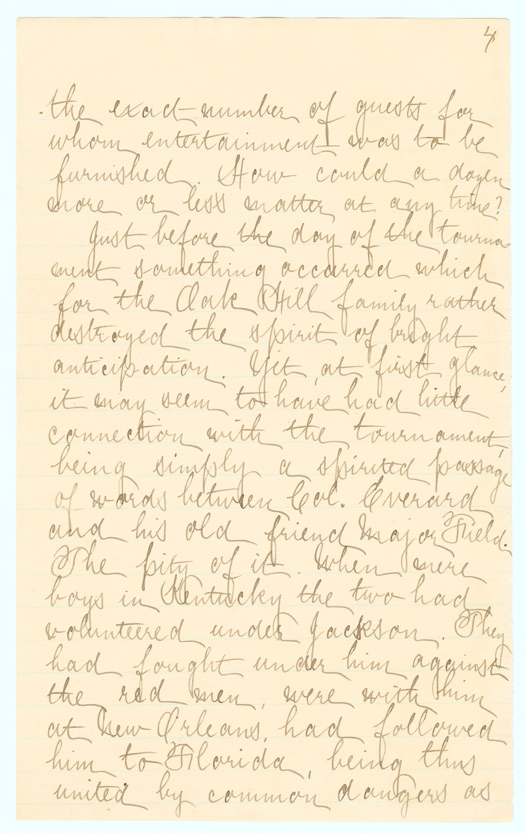 4
the exact number of guests for
whom entertainment was to be
furnished. How could a dozen
more or less matter at any time?
Just before the day of the tourna-
ment something occurred which
for the Oak Hill family rather
destroyed the spirit of bright
anticipation. Yet, at first glance,
it may seem to have had little
connection with the tournament,
being simply a spirited passage
of words between Col. Everard
and his old friend Major Field.
The pity of it. When mere
boys in Kentucky the two had
volunteered under Jackson. They
had fought under him against
the red men, were with him
at New Orleans, had followed
him to Florida, being thus
united by common dangers as